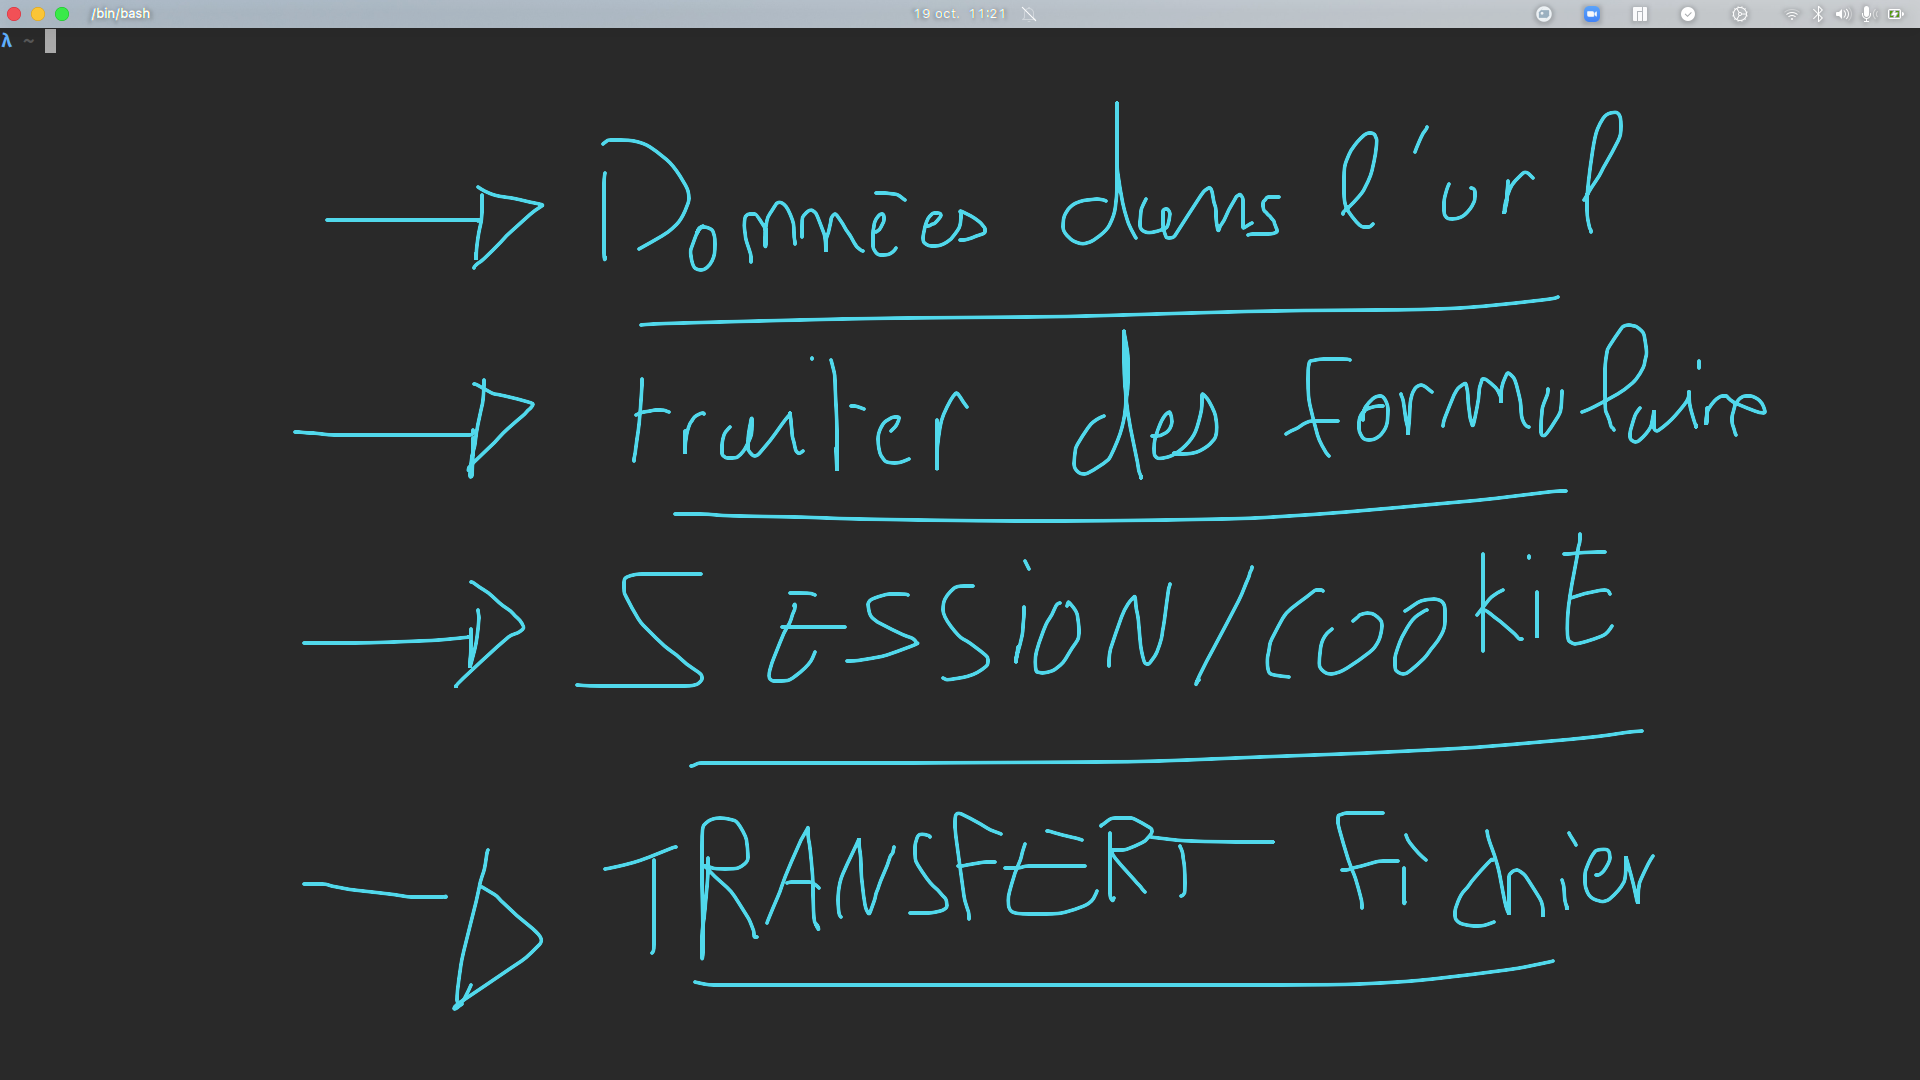 /bin/bash
19 oct. 11:21
λ ~
Données dans l'url
traiter des formulaire
SESSiON/COOKiE
TRANSFERT Fichier